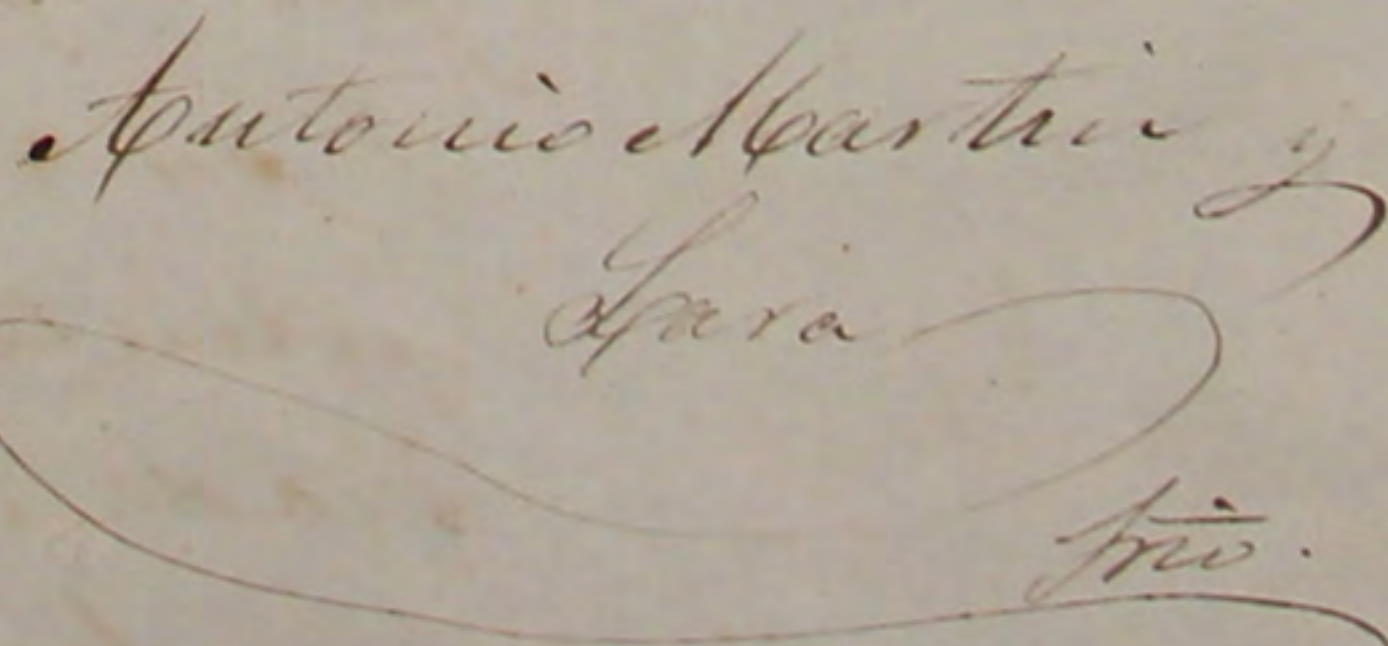 Antonio Martin y
Lara
Srio.